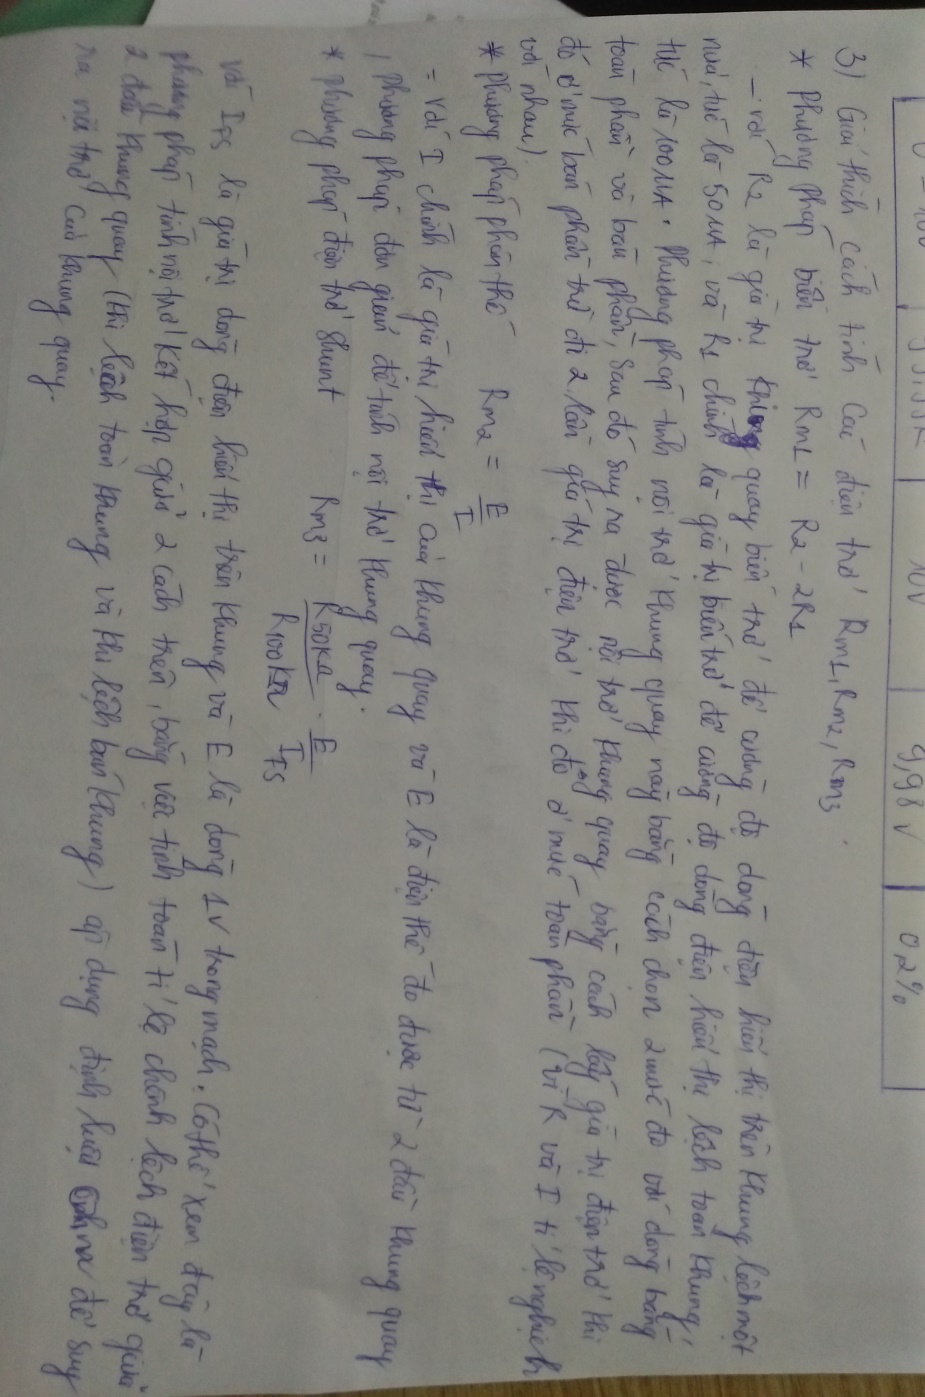 10V 9,98V 0,2%
3) Giải thích cách tính các điện trở Rm1, Rm2, Rm3.
* Phương pháp biến trở Rm1 = R2 - 2R1
- Với R2 là giá trị khi quay biến trở để cường độ dòng điện hiển thị trên khung lệch một
nửa, tức là 50µA, và R1 chính là giá trị biến trở để cường độ dòng điện hiển thị lệch toàn khung,
tức là 100µA. Phương pháp tính nội trở khung quay này bằng cách chọn 2 mức đo với dòng bằng
toàn phần và bán phần, sau đó suy ra được nội trở khung quay bằng cách lấy giá trị điện trở khi
đó ở mức bán phần trừ đi 2 lần giá trị điện trở khi đo ở mức toàn phần (vì R và I tỉ lệ nghịch
với nhau).
* Phương pháp phân thế Rm2 = E/I
= Với I chính là giá trị hiển thị của khung quay và E là điện thế đo được từ 2 đầu khung quay
phương pháp đơn giản để tính nội trở khung quay.
* Phương pháp điện trở Shunt Rm3 = R50KΩ/R100KΩ . E/Ifs
Với Ifs là giá trị dòng điện hiển thị trên khung và E là dòng 1V trong mạch. Có thể xem đây là
phương pháp tính nội trở kết hợp giữa 2 cách trên, bằng việc tính toán tỉ lệ chênh lệch điện trở giữa
2 đầu khung quay (khi lệch toàn khung và khi lệch bán khung) áp dụng định luật Ohm để suy
ra nội trở của khung quay.